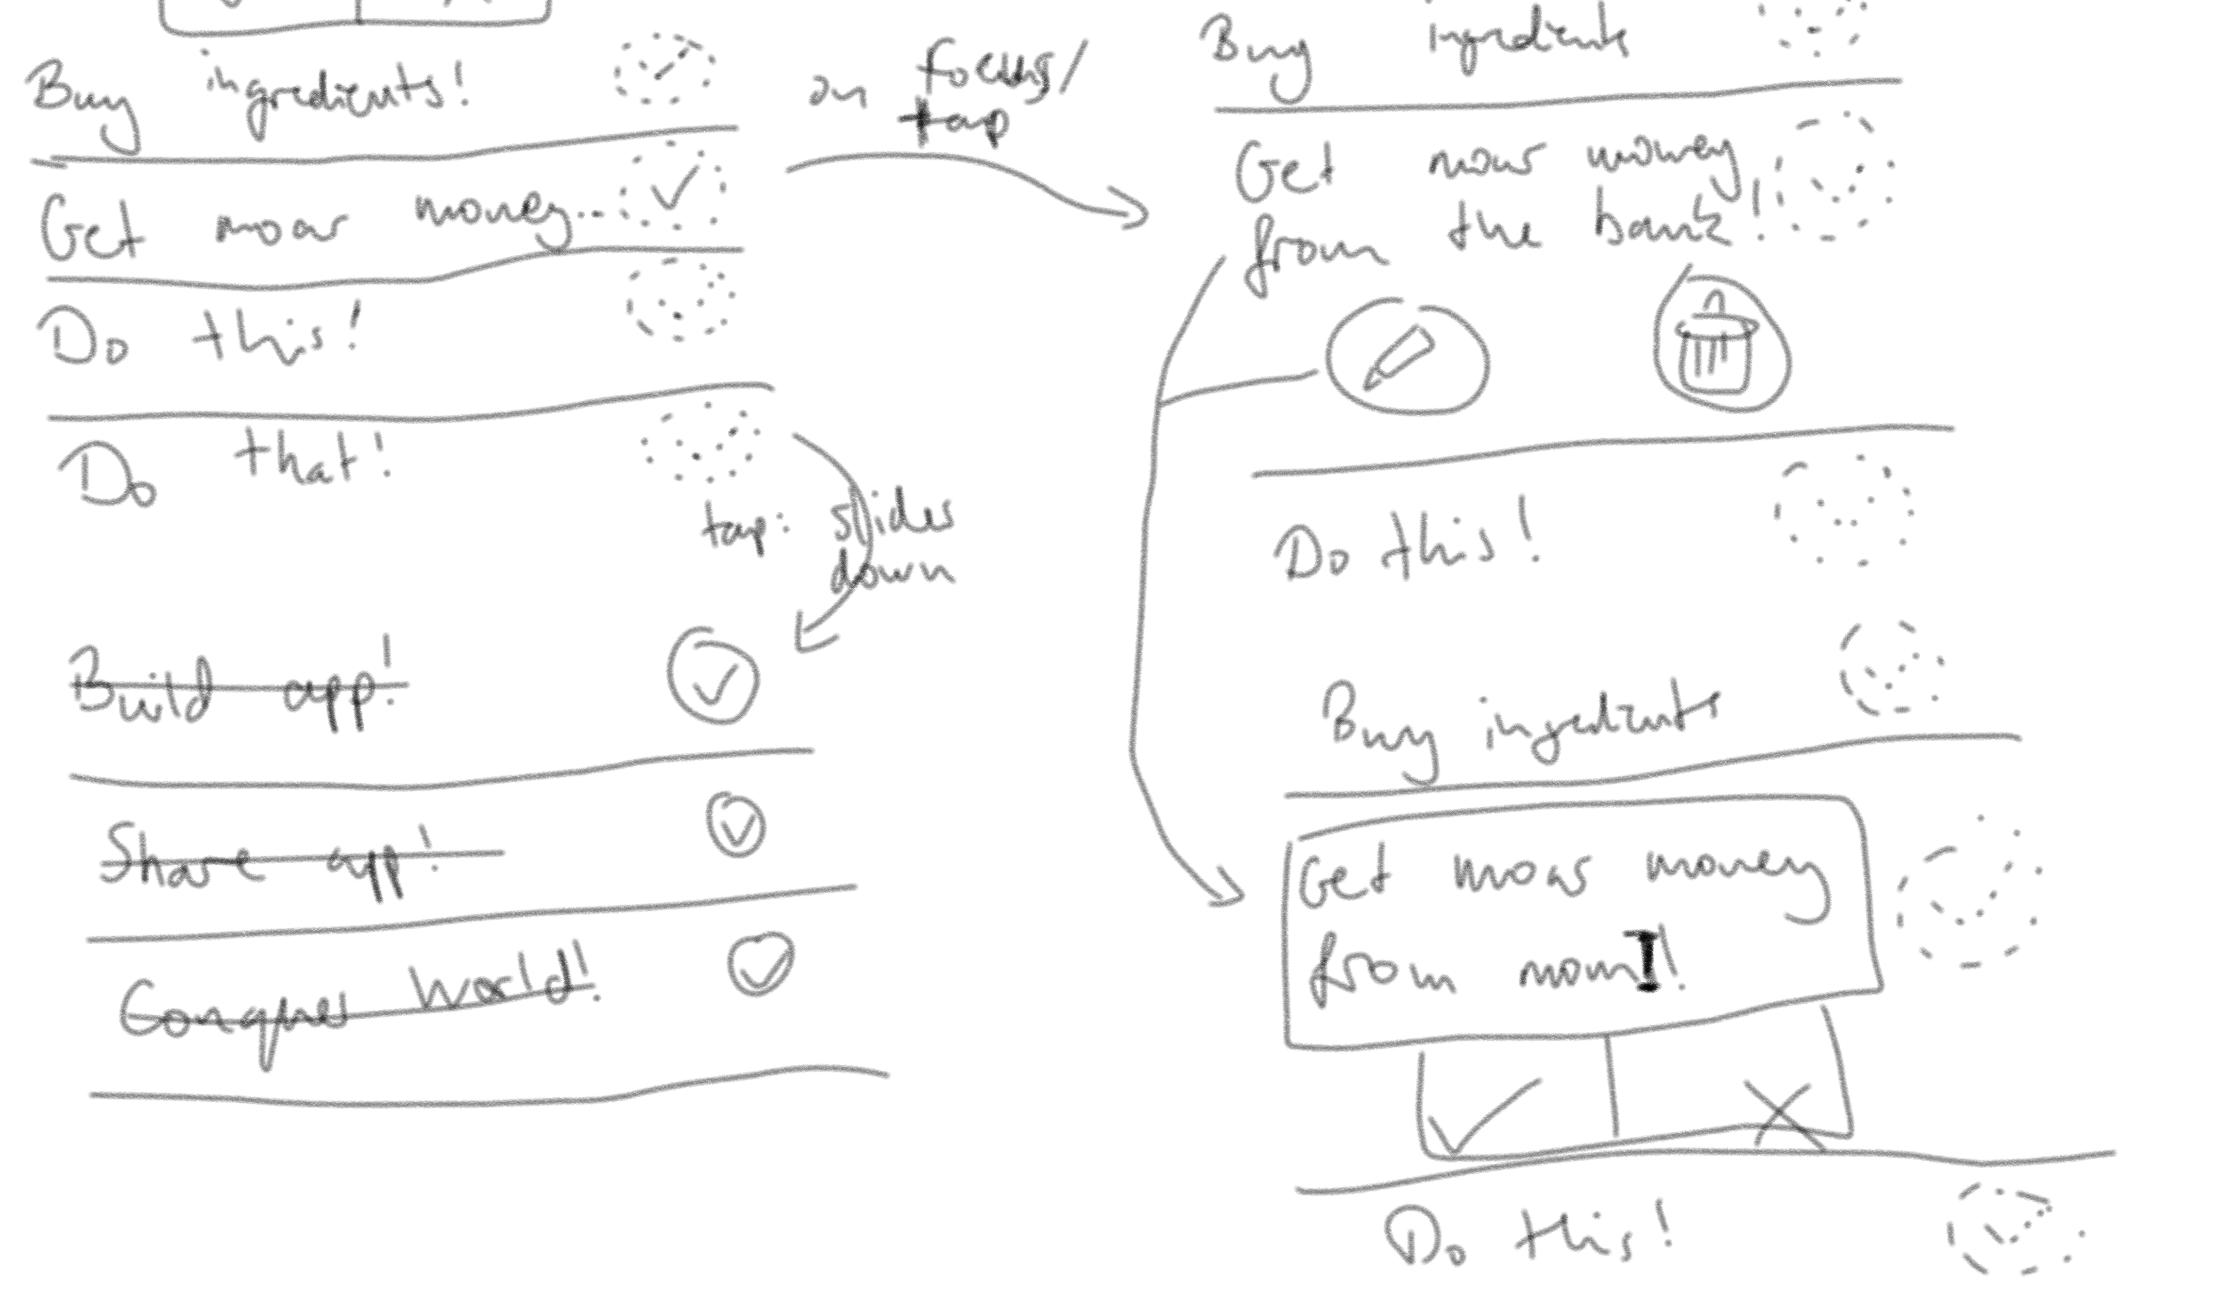 Buy ingredients!
Get moar money...
Do this!
Do that!
tap: slides
down
Build app!
Share app!
Conquer World!
on focus/
tap
Buy ingredients
Get moar money
from the bank!
Do this!
Buy ingredients
Get moar money
from mom!
Do this!